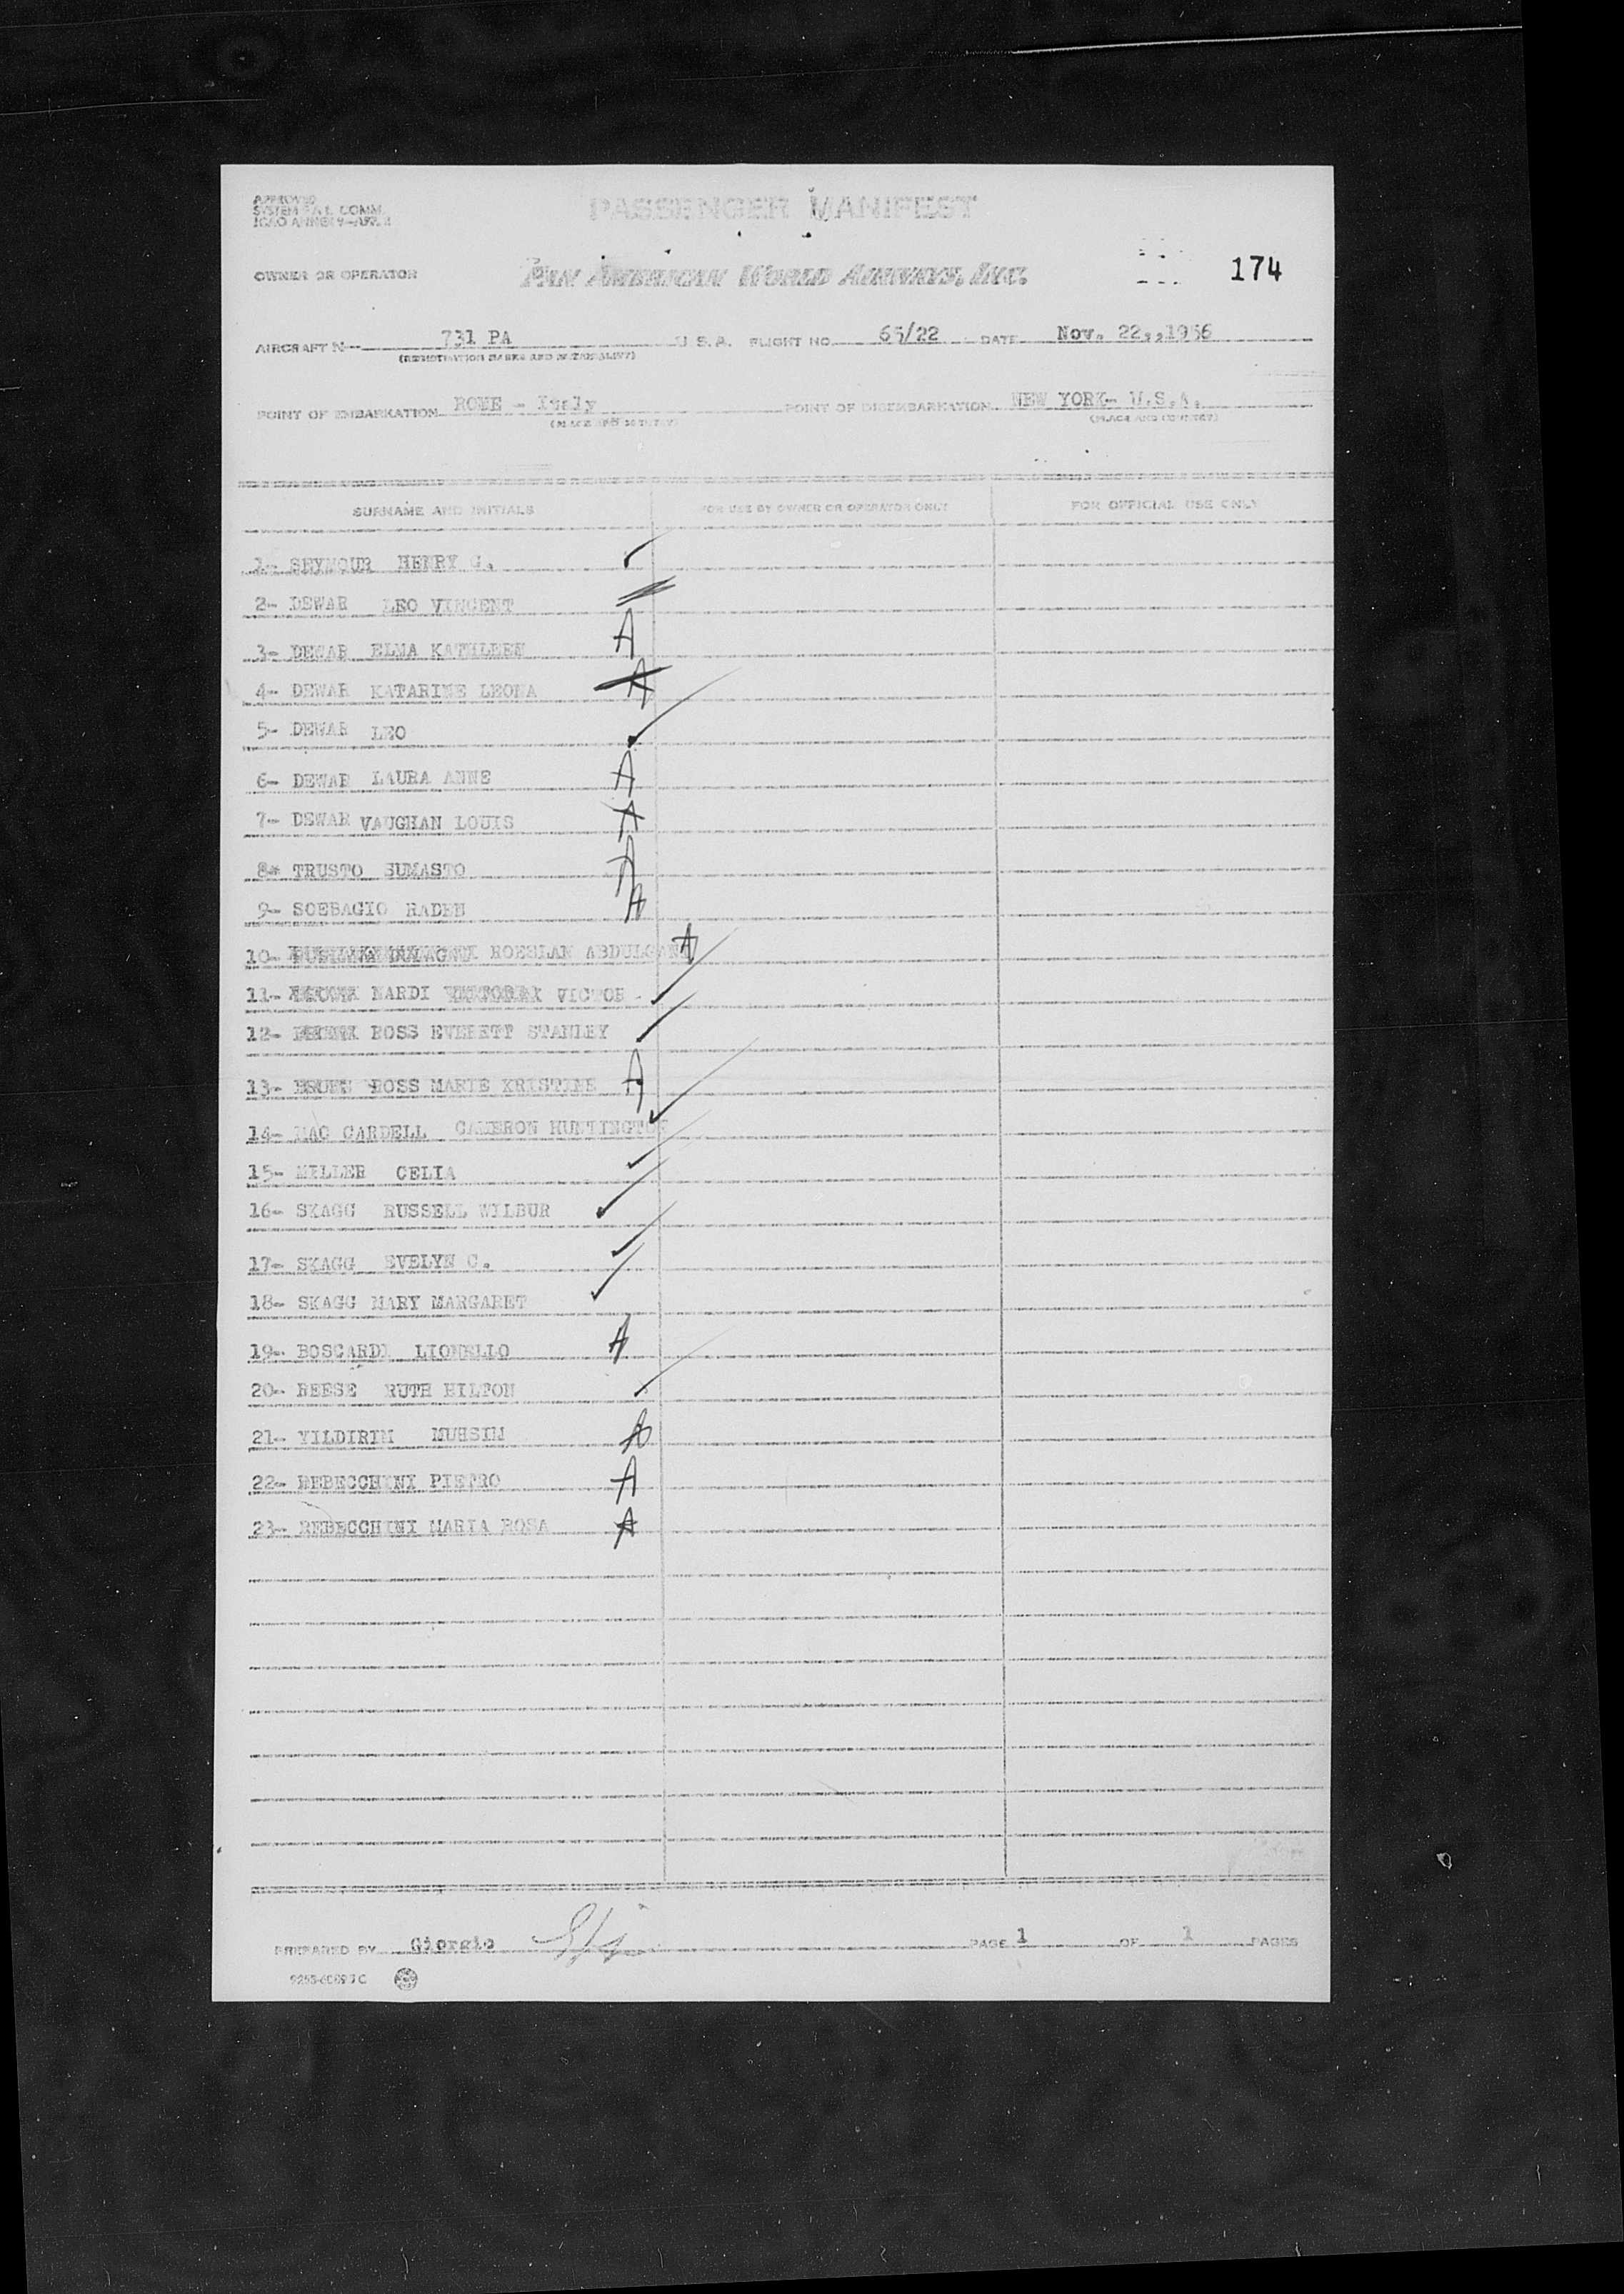 APPROVED
SYSTEM F.A.L. COMM.
ICAO ANNEX 9—APP. 4
PASSENGER MANIFEST
OWNER OR OPERATOR PAN AMERICAN WORLD AIRWAYS, INC. 174
AIRCRAFT N— 731 PA U S. A. FLIGHT NO. 65/22 DATE Nov. 22,,1956
(REGISTRATION MARKS AND NATIONALITY)
POINT OF EMBARKATION ROME - Italy POINT OF DISEMBARKATION NEW YORK- U.S.A.
(PLACE AND COUNTRY) (PLACE AND COUNTRY)
SURNAME AND INITIALS FOR USE BY OWNER OR OPERATOR ONLY FOR OFFICIAL USE ONLY
1- SEYMOUR HENRY G. ✓
2- DEWAR LEO VINCENT
3- DEWAR ELMA KATHLEEN A
4- DEWAR KATARINE LEONA A
5- DEWAR LEO ✓
6- DEWAR LAURA ANNE A
7- DEWAR VAUGHAN LOUIS A
8- TRUSTO SUMASTO A
9- SOEBAGIO RADEN A
10- ROESLAN ABDULGANI A
11- NARDI VICTOR ✓
12- ROSS EVERETT STANLEY ✓
13- ROSS MARIE KRISTINE A
14- MAC CARDELL CAMERON HUNTINGTON ✓
15- MILLER CELIA ✓
16- SKAGG RUSSELL WILBUR ✓
17- SKAGG EVELYN C. ✓
18- SKAGG MARY MARGARET ✓
19- BOSCARDI LIONELLO A
20- REESE RUTH HILTON ✓
21- YILDIRIM MUHSIN A
22- REBECCHINI PIETRO A
23- REBECCHINI MARIA ROSA A
PREPARED BY Giorgio PAGE 1 OF 1 PAGES